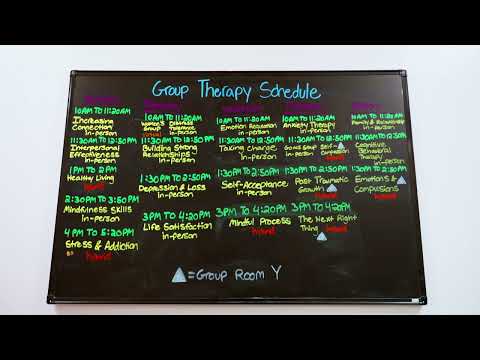 Group Therapy Schedule
10AM TO 11:20AM
Increasing
Connection
in-person
11:30AM TO 12:50PM
Interpersonal
Effectiveness
in-person
1PM TO 2PM
Healthy Living
hybrid
2:30PM TO 3:50PM
Mindfulness Skills
in-person
4PM TO 5:20PM
Stress & Addiction
hybrid
10AM TO 11:20AM
Women's
Group
virtual
Distress
Tolerance
in-person
11:30AM TO 12:50PM
Building Strong
Relationships
in-person
1:30PM TO 2:50PM
Depression & Loss
in-person
3PM TO 4:20PM
Life Satisfaction
in-person
10AM TO 11:20AM
Emotion Regulation
in-person
11:30AM TO 12:50PM
Taking Charge
in-person
1:30PM TO 2:50PM
Self-Acceptance
in-person
3PM TO 4:20PM
Mindful Process
hybrid
10AM TO 11:20AM
Anxiety Therapy
in-person
11:30AM TO 12:50PM
Self-
Compassion
in-person
1:30PM TO 2:50PM
Post Traumatic
Growth
hybrid
3PM TO 4:20PM
The Next Right
Thing
hybrid
10AM TO 11:20AM
Family & Relationship
in-person
11:30AM TO 12:50PM
Cognitive
Behavioral
Therapy
in-person
1:30PM TO 2:50PM
Emotions &
Compulsions
hybrid
= Group Room Y